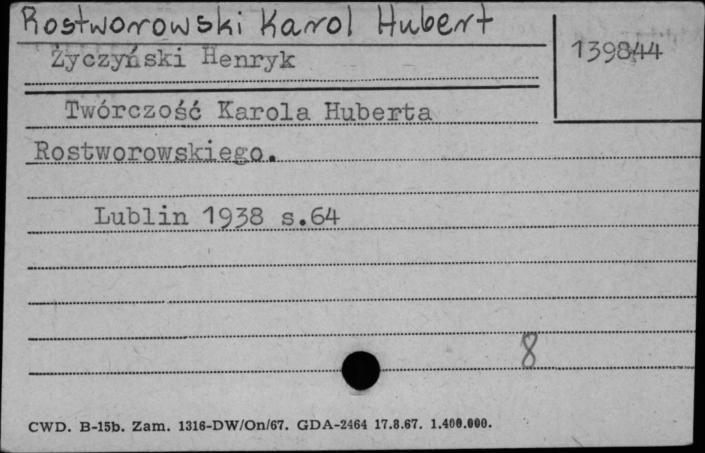 Rostworowski Karol Hubert
Życzyński Henryk
139844
Twórczość Karola Huberta
Rostworowskiego.
Lublin 1938 s.64
8
CWD. B-15b. Zam. 1316-DW/On/67. GDA-2464 17.8.67. 1.400.000.